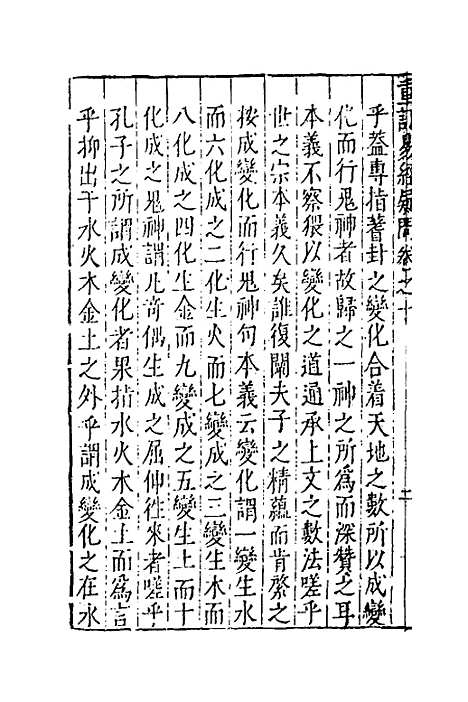 重訂易經疑問卷之十
乎蓋專指蓍卦之變化合着天地之數所以成變
化而行鬼神者故歸之一神之所爲而深贊之耳
本義不察猥以變化之道通承上文之數法嗟乎
世之宗本義久矣誰復闡夫子之精蘊而肯綮之
按成變化而行鬼神句本義云變化謂一變生水
而六化成之二化生火而七變成之三變生木而
八化成之四化生金而九變成之五變生土而十
化成之鬼神謂凡竒偶生成之屈伸徃來者嗟乎
孔子之所謂成變化者果指水火木金土而爲言
乎抑出于水火木金土之外乎謂成變化之在水